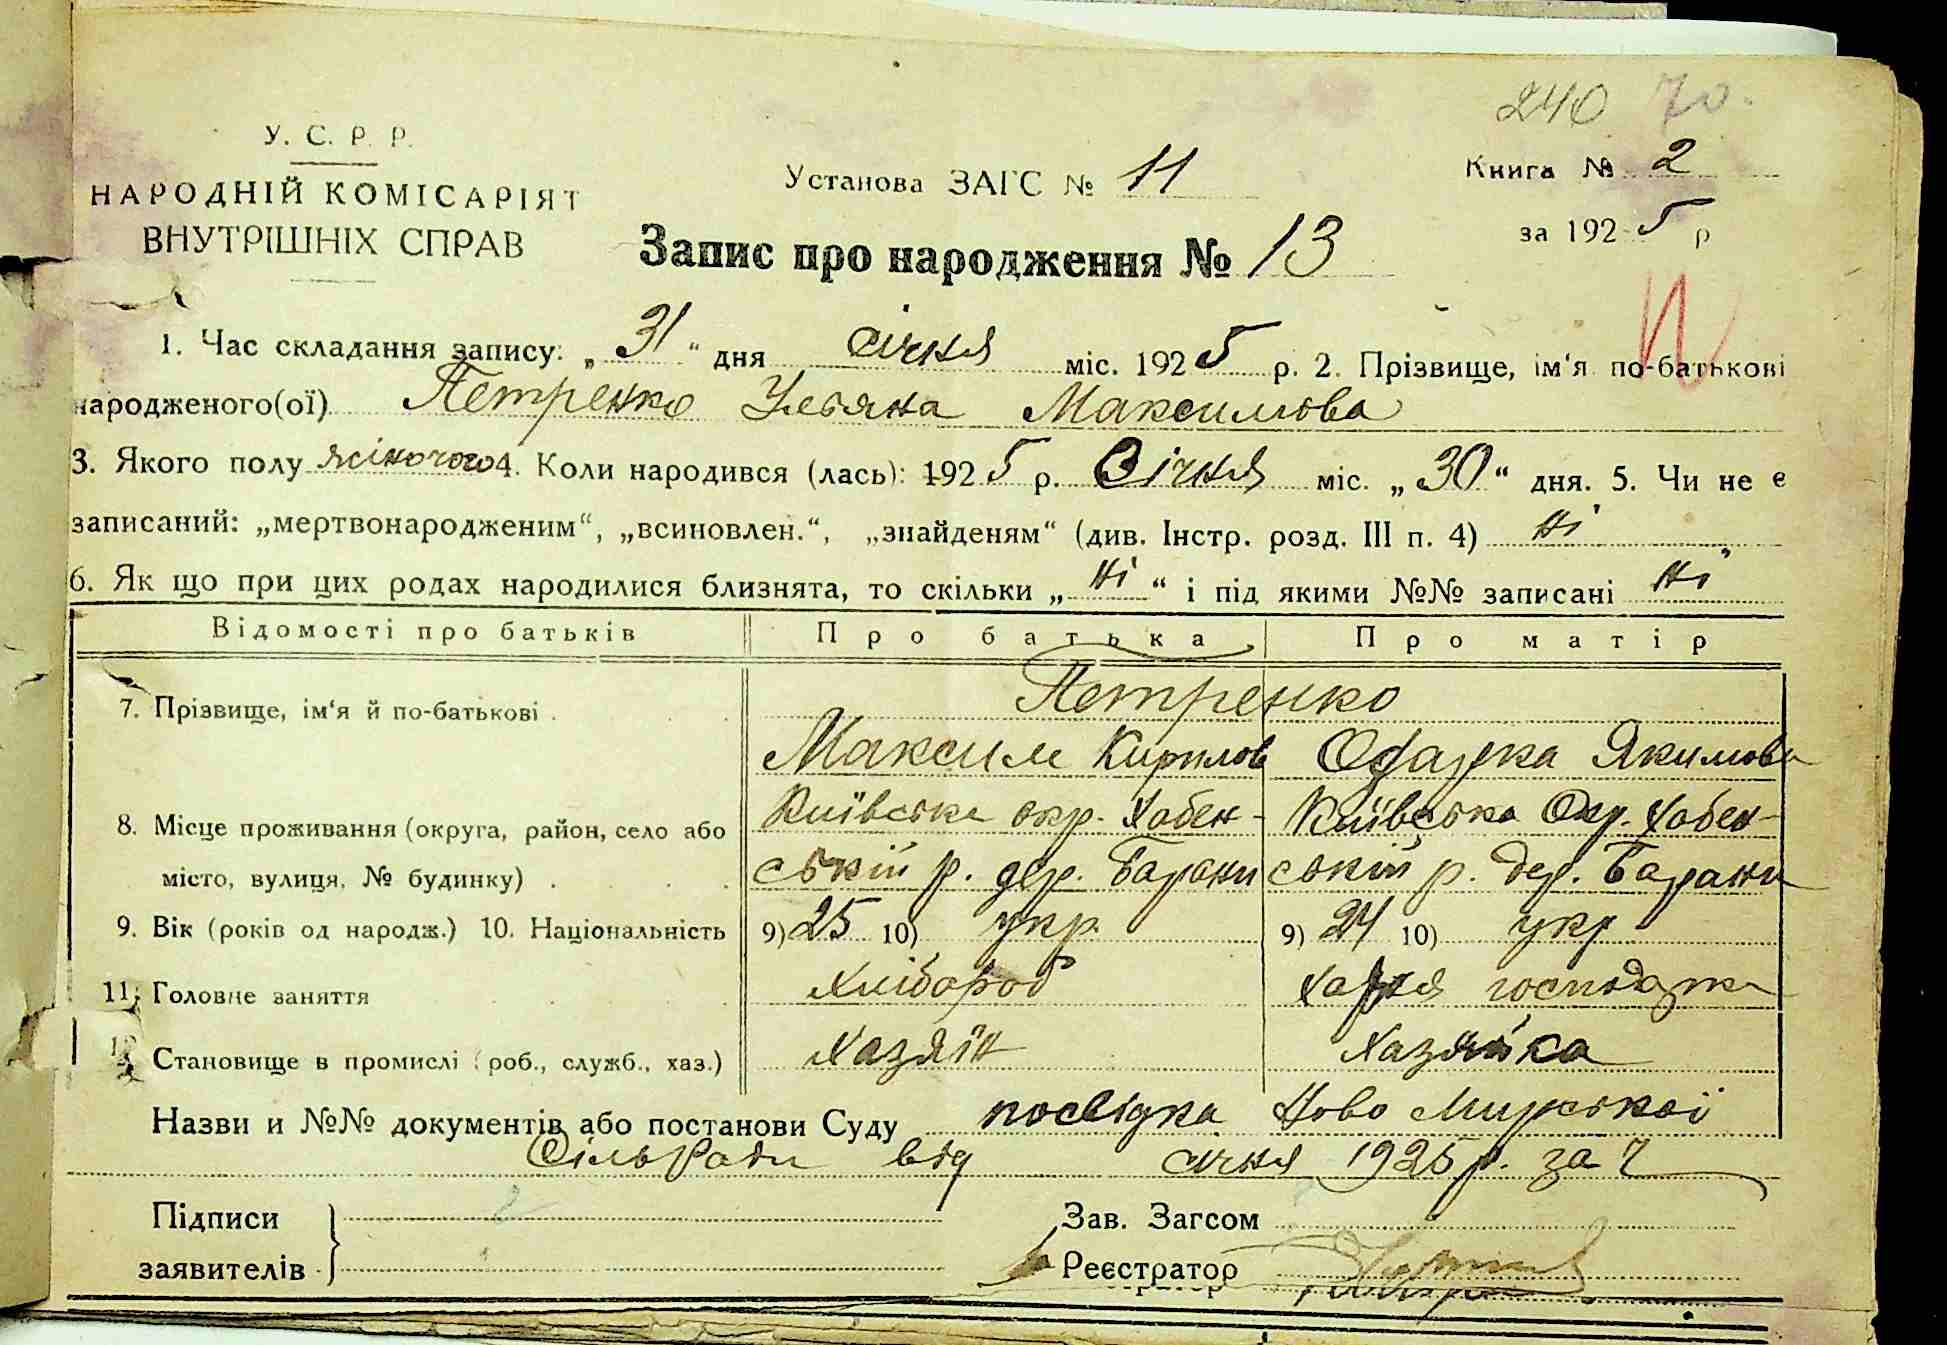 240 70.
У. С. Р. Р.
НАРОДНІЙ КОМІСАРІЯТ
ВНУТРІШНІХ СПРАВ
Установа ЗАГС № 11
Книга № 2
за 1925 р
Запис про народження № 13
1. Час складання запису: „31" дня січня міс. 1925 р. 2. Прізвище, ім'я по-батькові
народженого(ої) Петренко Уляна Максимова
3. Якого полу жіночого 4. Коли народився (лась): 1925 р. Січня міс. „30" дня. 5. Чи не є
записаний: „мертвонародженим", „всиновлен.", „знайденям" (див. Інстр. розд. III п. 4) ні
6. Як що при цих родах народилися близнята, то скільки „ні" і під якими №№ записані ні
Відомості про батьків Про батька Про матір
7. Прізвище, ім'я й по-батькові . Петренко
Максим Кирилов Одарка Якимова
8. Місце проживання (округа, район, село або Київська окр. Хабен- Київська Окр. Хабен-
місто, вулиця, № будинку) . ській р. дер. Барани ській р. дер. Барани
9. Вік (років од народж.) 10. Національність 9) 25 10) укр. 9) 24 10) укр
11. Головне заняття Хлібороб Хатня господарка
12. Становище в промислі (роб., служб., хаз.) Хазяїн Хазяйка
Назви и №№ документів або постанови Суду посвідка Ново Мирської
СільРади від січня 1925 р. за Ч
Підписи
заявителів
Зав. Загсом
Реєстратор